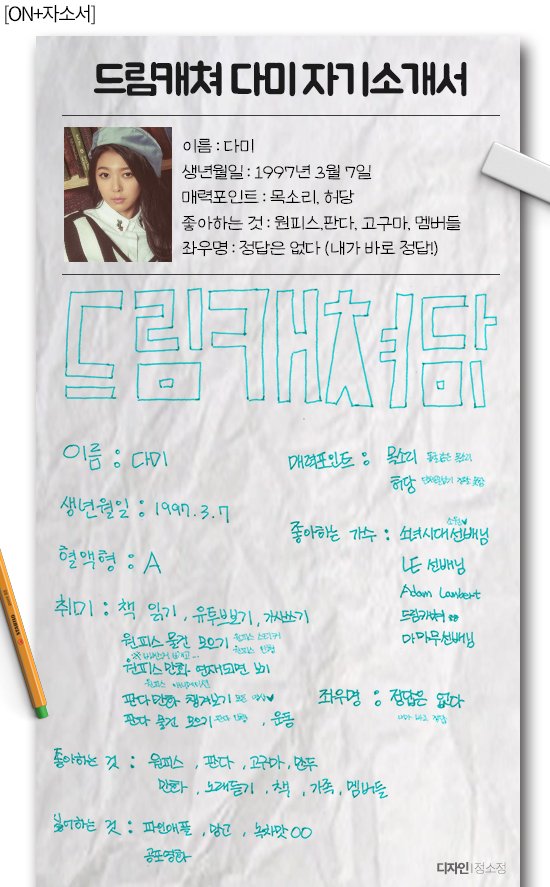 [ON+자소서]
드림캐쳐 다미 자기소개서
이름 : 다미
생년월일 : 1997년 3월 7일
매력포인트 : 목소리, 허당
좋아하는 것 : 원피스,판다, 고구마, 멤버들
좌우명 : 정답은 없다 (내가 바로 정답!)
드림캐쳐 담
이름 : 다미
생년월일 : 1997. 3. 7
혈액형 : A
취미 : 책 읽기, 유투브보기, 가사쓰기
원피스 물건 모으기 원피스 스티커
원피스 인형
원피스 만화 연재되면 보기
판다 만화 챙겨보기
판다 물건 모으기 판다 인형, 운동
매력포인트 : 목소리
허당
좋아하는 가수 : 소녀시대 선배님
LE 선배님
Adam Lambert
드림캐쳐
마마무 선배님
좌우명 : 정답은 없다
내가 바로 정답
좋아하는 것 : 원피스, 판다, 고구마, 만두
만화, 노래듣기, 책, 가족, 멤버들
싫어하는 것 : 파인애플, 당근, 녹차맛 OO
공포영화
디자인 | 정소정